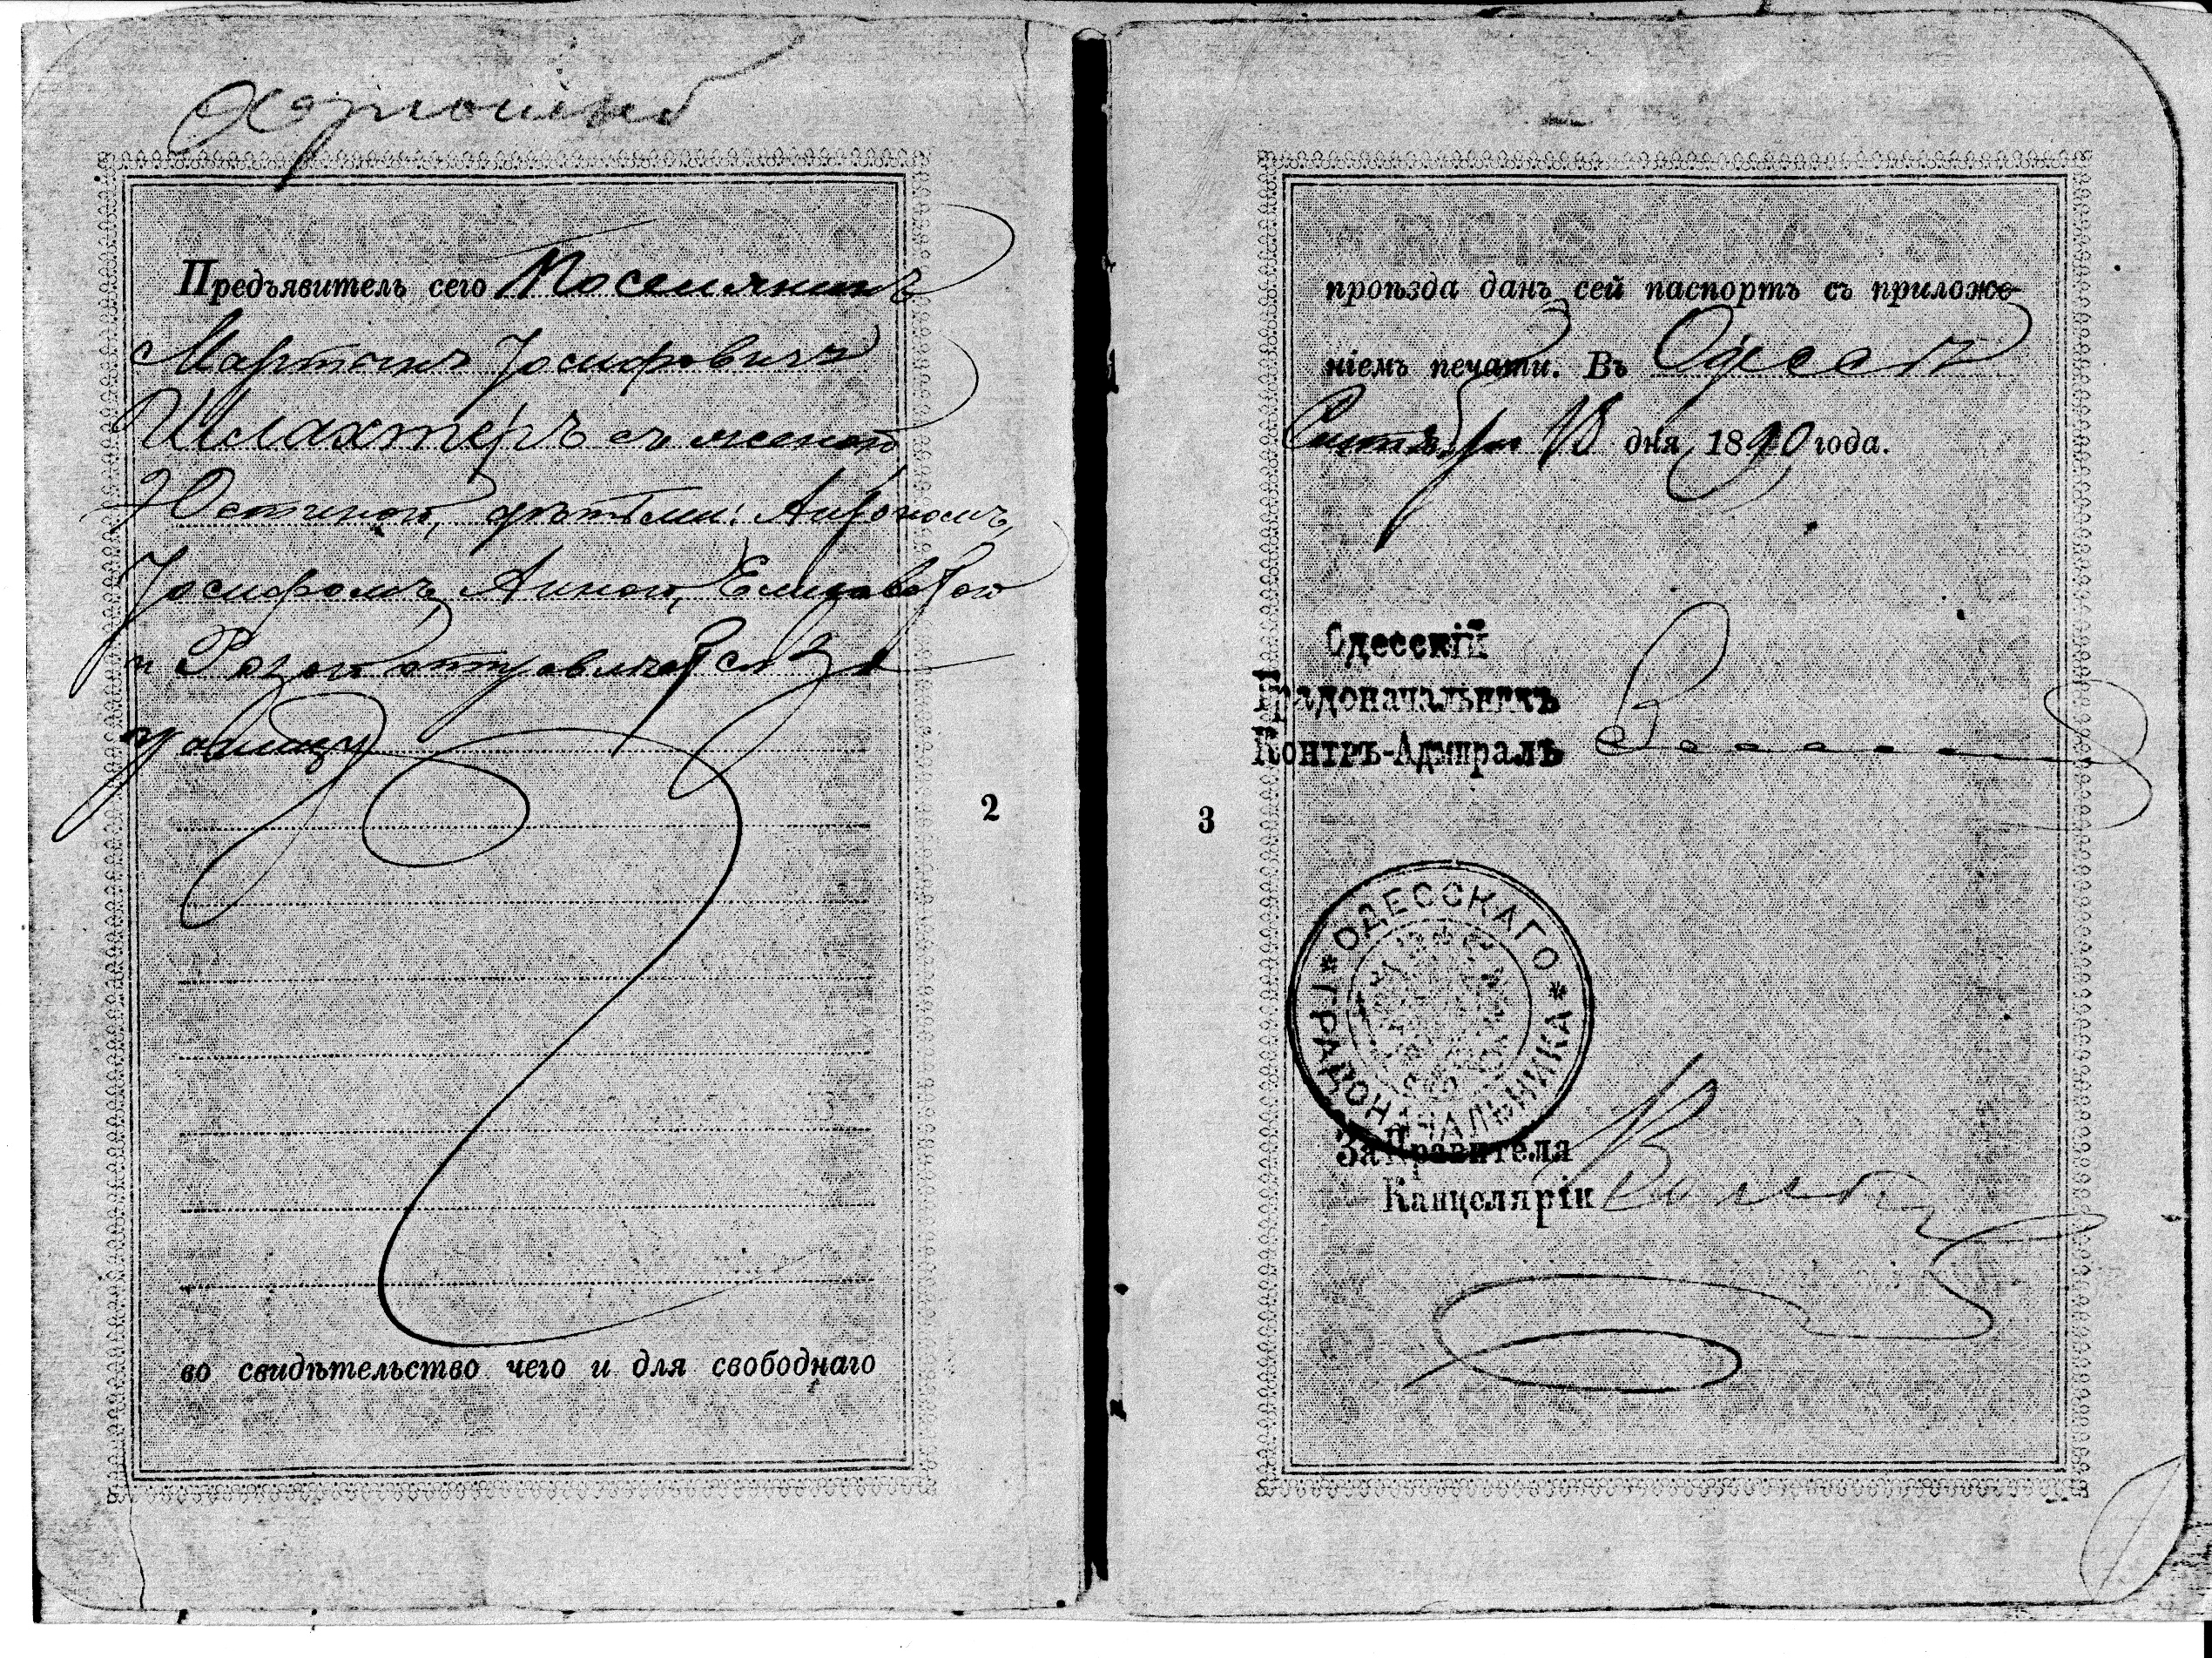 Предъявитель сего Поселянинъ
Мартынъ Іосифовичъ
Шлахтеръ съ женою
Юстиною, дѣтьми: Антономъ,
Іосифомъ, Анною, Елисаветою
и Розою отправляется за
границу
2
во свидѣтельство чего и для свободнаго
REISE PASS
проѣзда данъ сей паспортъ съ приложе-
ніемъ печати. Въ Одессѣ
Сентября 18 дня 1890 года.
Одесскій
Градоначальникъ
Контръ-Адмиралъ
3
* ОДЕССКАГО * ГРАДОНАЧАЛЬНИКА
За Правителя
Канцеляріи